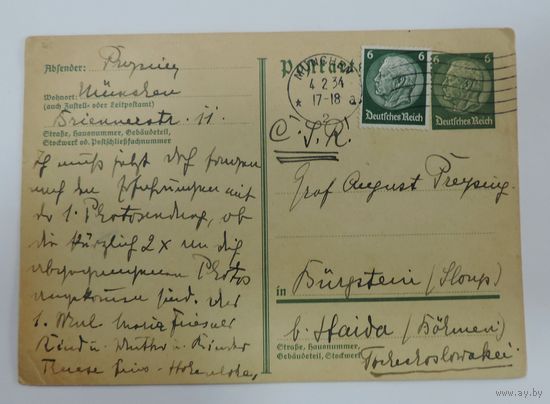 Absender: Preysing
Wohnort: München
(auch Zustell- oder Leitpostamt)
Briennerstr. 11.
Straße, Hausnummer, Gebäudeteil,
Stockwerk od. Postschließfachnummer
Ich muß jetzt doch
nach den Erfahrungen mit
der 1. Photosendung, ob
die kürzlich 2 x an dich
abgegangenen Photos
angekommen sind. Der
1. Marie
Kind u. Mutter u. Kinder
Postkarte
MÜNCHEN
4.2.34
* 17-18
2
6 6
Deutsches Reich
6 6
Deutsches Reich
Č.S.R.
Graf August Preysing.
in Bürgstein (Sloup)
b. Haida (Böhmen)
Straße, Hausnummer,
Gebäudeteil, Stockwerk
Tschechoslowakei
www.ay.by